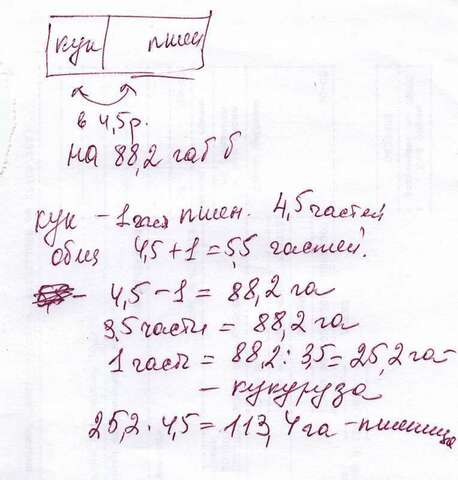 кук пшен
в 4,5 р.
на 88,2 га б
кук - 1 част пшен. 4,5 частей
общ 4,5 + 1 = 5,5 частей.
- 4,5 - 1 = 88,2 га
3,5 части = 88,2 га
1 часть = 88,2 : 3,5 = 25,2 га -
- кукуруза
25,2 · 4,5 = 113,4 га - пшеница